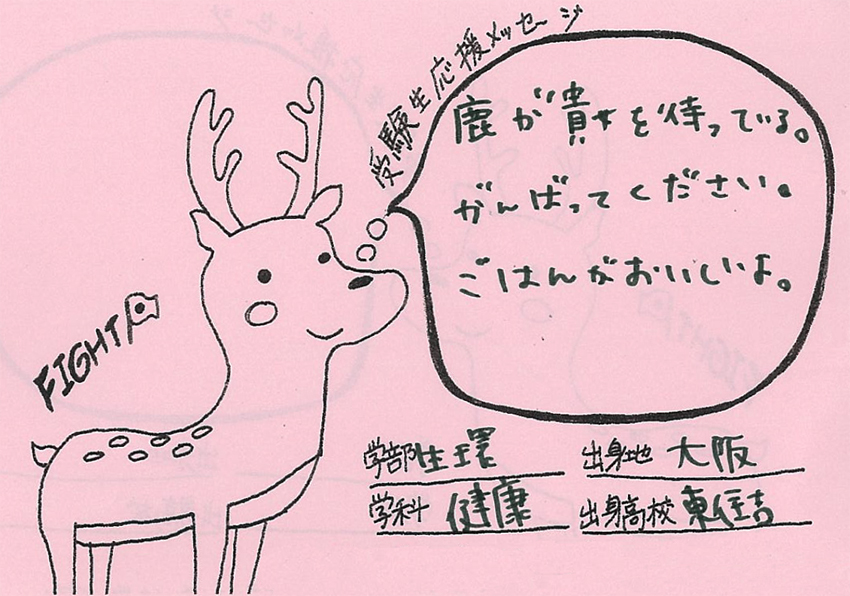 受験生応援メッセージ
鹿が貴女を待っている。
がんばってください。
ごはんがおいしいよ。
FIGHT
学部 生環
出身地 大阪
学科 健康
出身高校 東住吉